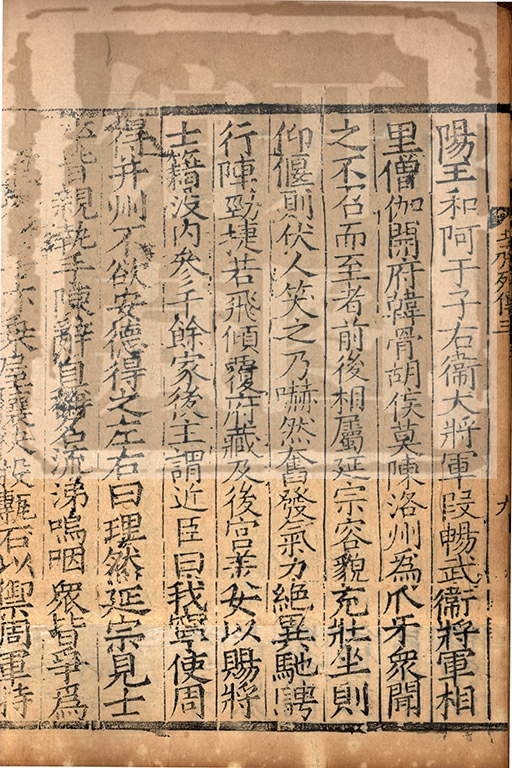 陽王和阿于子右衞大將軍段暢武衞將軍相
里僧伽開府韓骨胡侯莫陳洛州為爪牙衆聞
之不召而至者前後相屬延宗容貌充壯坐則
仰偃則伏人笑之乃嚇然奮發氣力絕異馳騁
行陣勁捷若飛傾覆府藏及後宮美女以賜將
士籍沒內參千餘家後主謂近臣曰我寧使周
得并州不欲安德得之左右曰理然延宗見士
皆親執手陳辭自稱名流涕嗚咽衆皆爭為
乘屋攘袂投甎石以禦周軍特